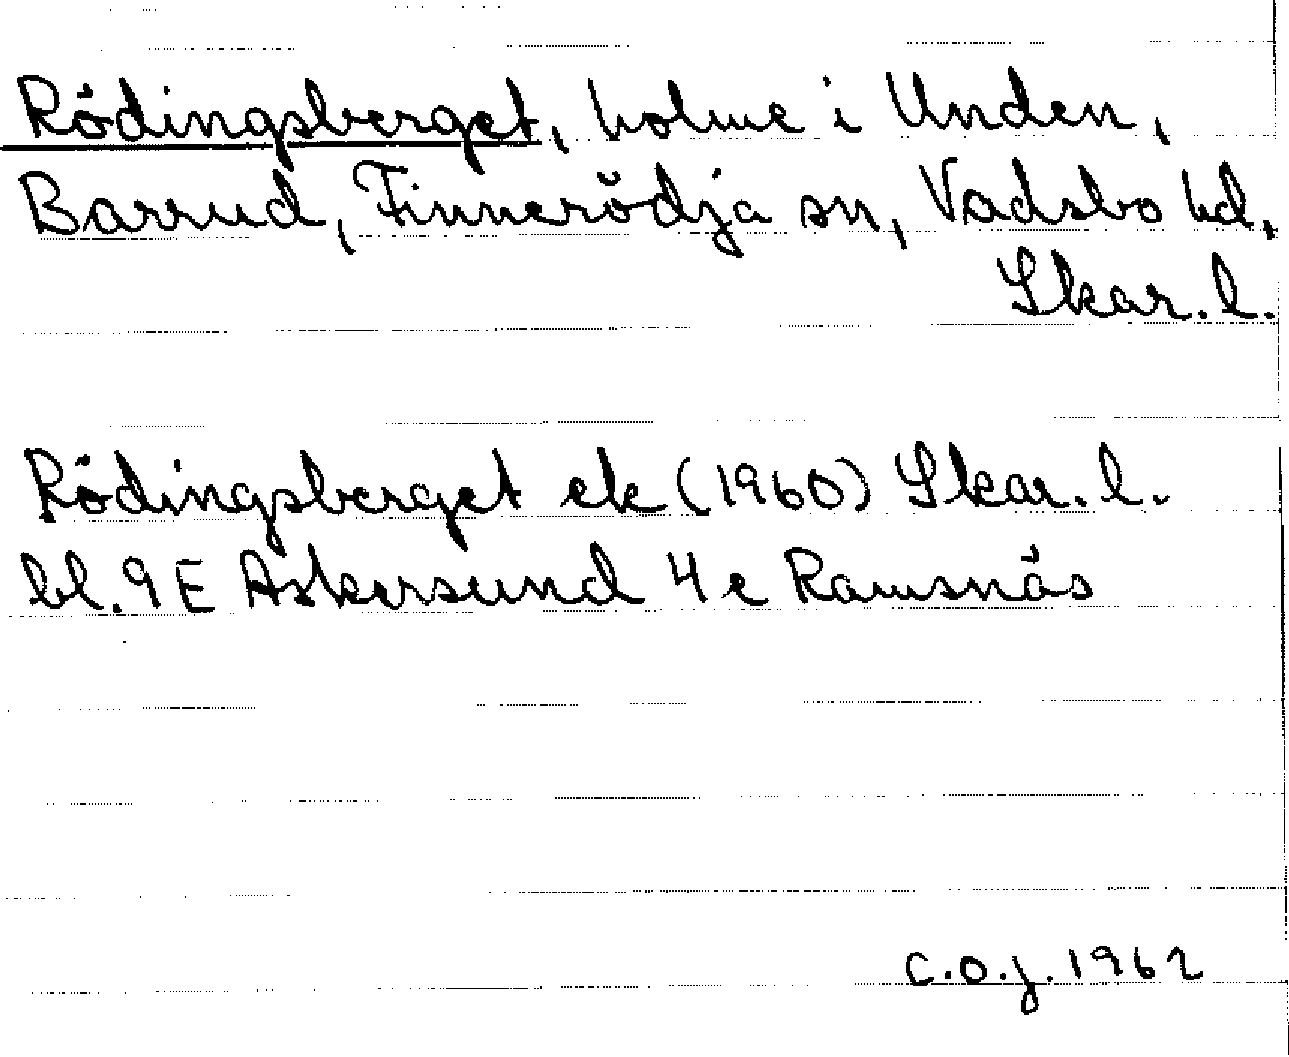 Rödingsberget, holme i Unden,
Barrud, Finnerödja sn, Vadsbo hd,
Skar. l.
Rödingsberget ek (1960) Skar. l.
bl. 9 E Askersund 4 e Ramsnäs
C.O.J. 1962